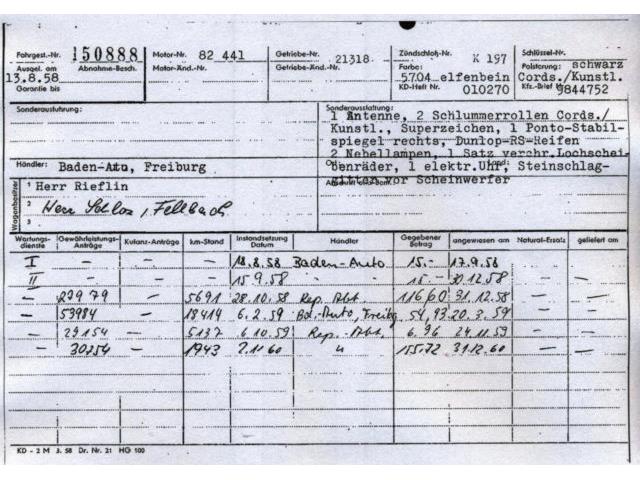 Fahrgest.-Nr. 150888 Motor-Nr. 82 441 Getriebe-Nr. 21318 Zündschloß-Nr. K 197 Schlüssel-Nr.
Ausgel. am Abnahme-Besch. Motor-Änd.-Nr. Getriebe-Änd.-Nr. Farbe: Polsterung: schwarz
13.8.58 5704 elfenbein Cords./Kunstl.
Garantie bis KD-Heft Nr. 010270 Kfz.-Brief 9844752
Sonderausführung: Sonderausstattung:
1 Antenne, 2 Schlummerrollen Cords./
Kunstl., Superzeichen, 1 Ponto-Stabil-
spiegel rechts, Dunlop-RS-Reifen
2 Nebellampen, 1 Satz verchr. Lochschei-
Händler: Baden-Auto, Freiburg benräder, 1 elektr. Uhr, Steinschlag-
gittern vor Scheinwerfer
Wagenbesitzer
1 Herr Rieflin
2 Herr Schloz, Fellbach
3
Wartungs-dienste Gewährleistungs-Anträge Kulanz-Anträge km-Stand Instandsetzung Datum Händler Gegebener Betrag angewiesen am Natural-Ersatz geliefert am
I – – – 18.8.58 Baden-Auto 15.- 17.9.58
II – – – 15.9.58 " " 15.- 30.12.58
– 27979 – 5691 28.10.58 Rep. Abt. 116,60 31.12.58 – –
– 53984 – 18414 6.2.59 Bad.-Auto, Freibg. 54,93 20.3.59 – –
– 29154 – 5137 6.10.59 Rep.-Abt. 6.96 24.11.59 – –
– 30754 – 1943 2.11.60 " 155.72 31.12.60 – –
KD – 2 M 3. 58 Dr. Nr. 21 HG 100